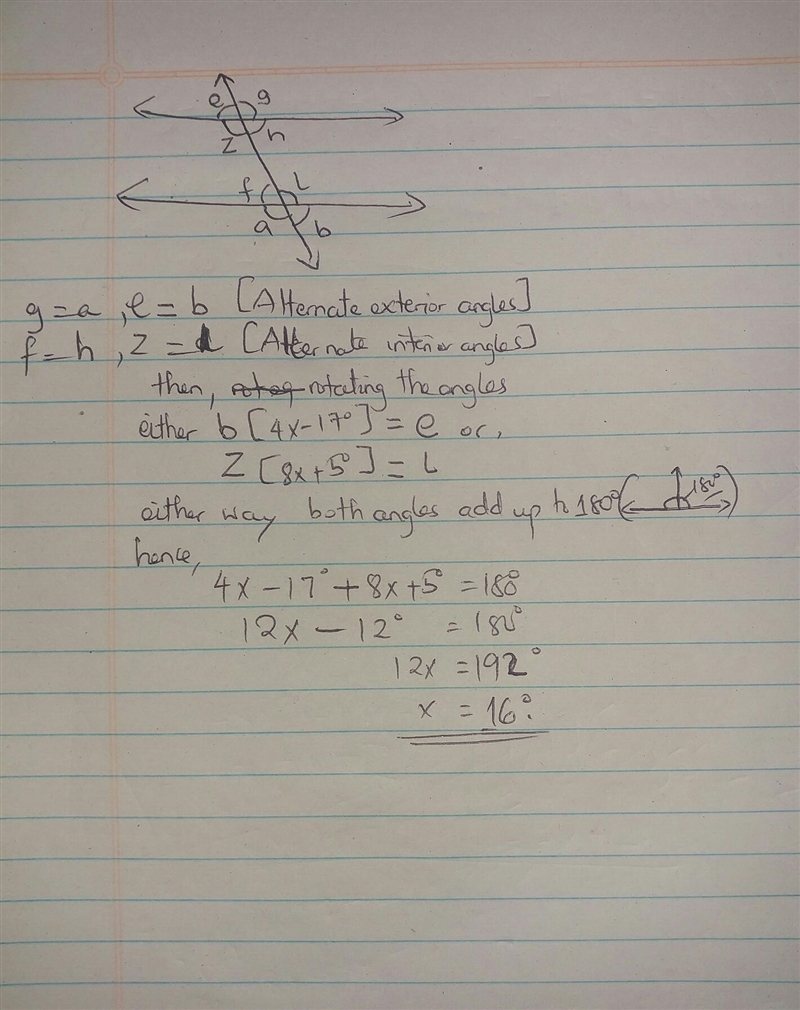 e g
z h
f l
a b
g = a , e = b [Alternate exterior angles]
f = h , z = l [Alternate interior angles]
then, rotating the angles
either b [4x-17°] = e or,
z [8x+5°] = L
either way both angles add up h 180° ( 180° )
hence,
4x - 17° + 8x + 5° = 180°
12x - 12° = 180°
12x = 192°
x = 16°.